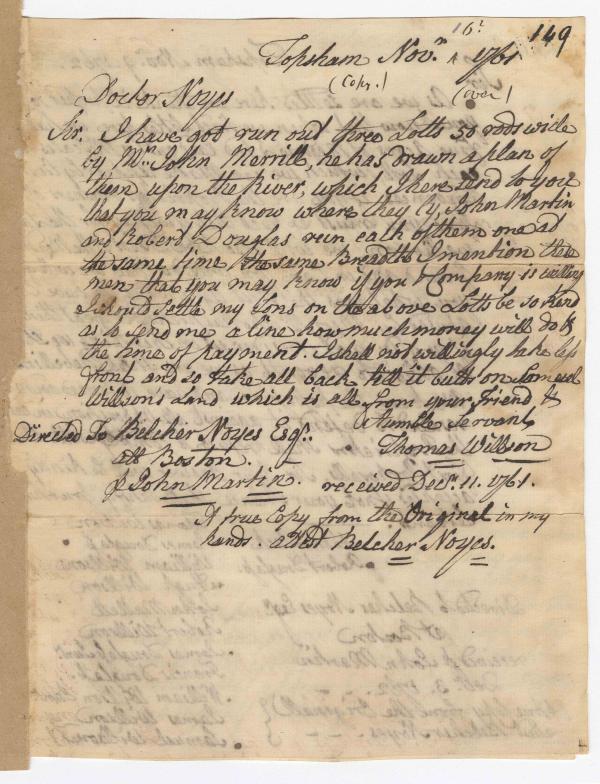 149
Topsham Novr. 16t. 1761
(Copy.) (over)
Doctor Noyes
Sir. I have got run out three Lotts 50 rods wide
by Mr. John Merrill, he has drawn a plan of
them upon the River, which I here send to you
that you may know where they ly, John Martin
and Robert Douglas run each of them one at
the same time the same Breadth I mention these
men that you may know if you & Company is willing
I should settle my Sons on the above Lotts be so kind
as to send me a line how much money will do &
the time of payment. I shall not willingly take less
front and so take all back till it butts on Samuel
Willson's Land which is all from your friend &
Humble Servant
Thomas Willson
Directed To Belcher Noyes Esqr.
att Boston.
p John Martin. received Decr. 11. 1761.
A true Copy from the Original in my
hands. attest Belcher Noyes.